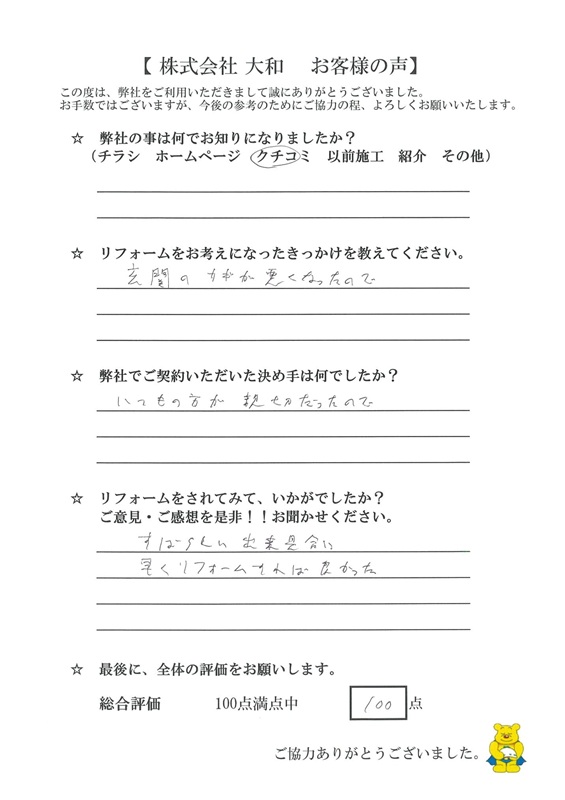 【 株式会社 大和　お客様の声】
この度は、弊社をご利用いただきまして誠にありがとうございました。
お手数ではございますが、今後の参考のためにご協力の程、よろしくお願いいたします。
☆　弊社の事は何でお知りになりましたか？
（チラシ　ホームページ　クチコミ　以前施工　紹介　その他）
☆　リフォームをお考えになったきっかけを教えてください。
玄関のカギが悪くなったので
☆　弊社でご契約いただいた決め手は何でしたか？
いつもの方が親切だったので
☆　リフォームをされてみて、いかがでしたか？
ご意見・ご感想を是非！！お聞かせください。
すばらしい出来具合に
早くリフォームすれば良かった
☆　最後に、全体の評価をお願いします。
総合評価　100点満点中　100 点
ご協力ありがとうございました。